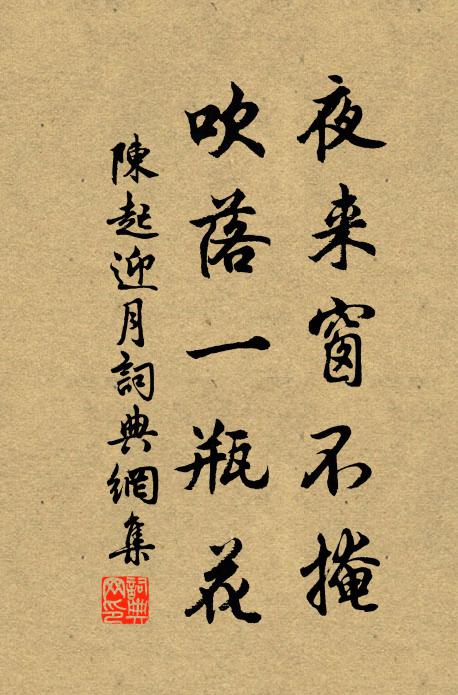 夜来窗不掩
吹落一瓶花
陳起迎月詞典網集
詞典网印